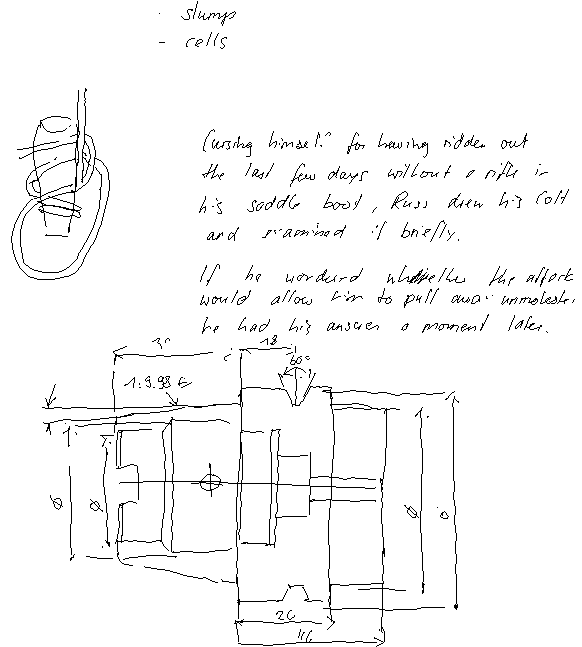 - slumps
- cells
Cursing himself for having ridden out
the last few days without a rifle in
his saddle boot, Russ drew his Colt
and examined it briefly.
If he wondered whether the attack
would allow him to pull away unmolested
he had his answer a moment later.
18
60°
1:9.98
26
46